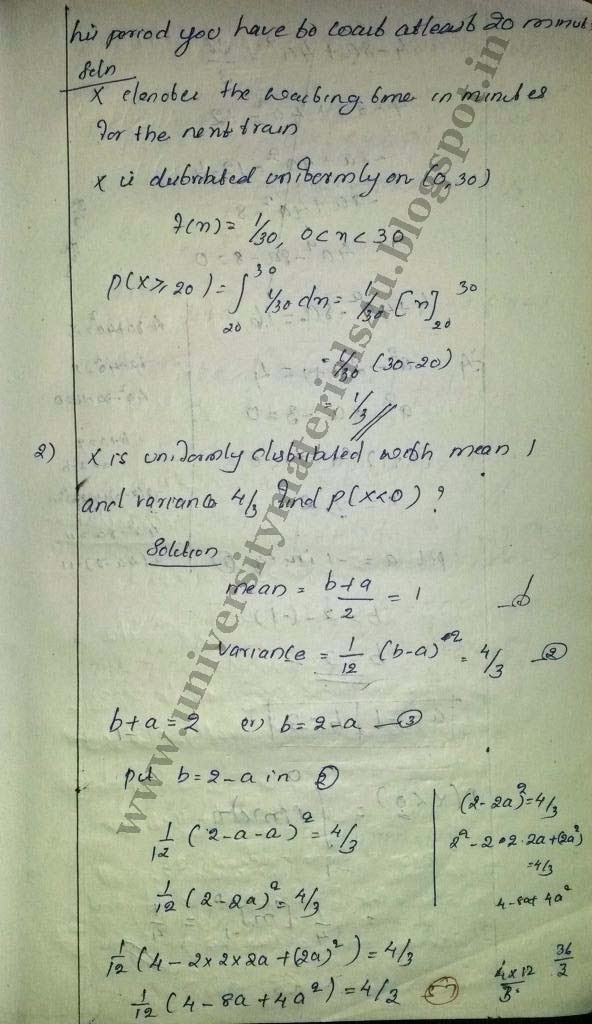 his period you have to wait atleast 20 minut
Soln
X denotes the waiting time in minutes
for the next train
X is distributed uniformly on (0,30)
f(x) = 1/30, 0<x<30
P(X≥20) = ∫₂₀³⁰ 1/30 dx = 1/30 [x]₂₀³⁰
= 1/30 (30-20)
= 1/3 //
2) X is uniformly distributed with mean 1
and variance 4/3 find P(X<0) ?
Solution
mean = b+a/2 = 1 —①
variance = 1/12 (b-a)² = 4/3 —②
b+a = 2 b = 2-a —③
put b=2-a in ②
1/12 (2-a-a)² = 4/3
1/12 (2-2a)² = 4/3
1/12 (4-2×2×2a+(2a)²) = 4/3
1/12 (4-8a+4a²) = 4/3
(2-2a)² = 4/3
2² - 2·2·2a+(2a²)
= 4/3
4-8a+4a²
4×12/3
36/3
www.universitymaterials4u.blogspot.in